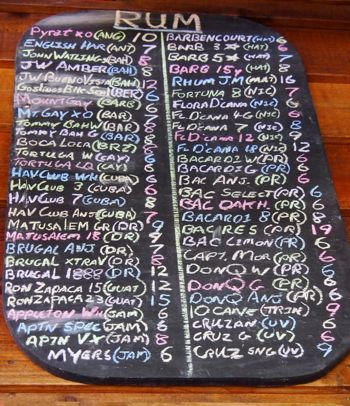 RUM
Pyrat XO (ANG) 10
ENGLISH HAR (ANT) 7
JOHN WATLINGS (BAH) 8
JW AMBER (BAH) 8
JW BUENO VISTA (BAH) 12
GOSLINGS BLK SEAL (BER) 6
MOUNT GAY (BARB) 6
MT GAY XO (BAR) 9
TOMMY BAHW (BAR) 8
TOMMY BAH G (BAR) 8
BOCA LOCA (BRZ) 8
TORTUGA W (GAY) 6
TORTUGA GO (GAY) 6
HAV CLUB WH (CUBA) 6
HAV CLUB 3 (CUBA) 6
HAV CLUB 7 (CUBA) 8
HAV CLUB ANJ (CUBA) 7
MATUSALEM GR (DR) 9
MATUSALEM 18 (DR) 9
BRUGAL ANJ (DR) 7
BRUGAL XTRA V (DR) 8
BRUGAL 1888 (DR) 12
RON ZAPACA 15 (GUAT) 12
RON ZAPACA 23 (GUAT) 15
APPLETON WH (JAM) 6
APTN SPEC (JAM) 6
APTN VX (JAM) 8
MYERS (JAM) 6
BARBENCOURT (HAT) 6
BARB 3 ☆ (HAT) 6
BARB 5 ☆ (HAT) 7
BARB 15 y (HAT) 8
RHUM J.M (MAT) 16
FORTUNA 8 (NIC) 7
FLOR D'CANA (NIC) 6
FL D'CANA 4 G (NIC) 6
FL D'CANA 7 (NIC) 8
FL D'CANA 12 (NIC) 9
FL D'CANA 18 (NIC) 12
BACARDI W (PR) 6
BACARDI G (PR) 6
BAC ANJ. (PR) 6
BAC SELECT (PR) 6
BAC OAKH. (PR) 6
BACARDI 8 (PR) 8
BAC RES (PR) 19
BAC LIMON (PR) 6
CAPT. MOR (PR) 6
DON Q W (PR) 6
DON Q G (PR) 6
DON Q ANJ (PR) 6
10 CANE (TRIN) 9
CRUZAN (UV) 6
CRUZ G (UV) 6
CRUZ SNG (UV) 9